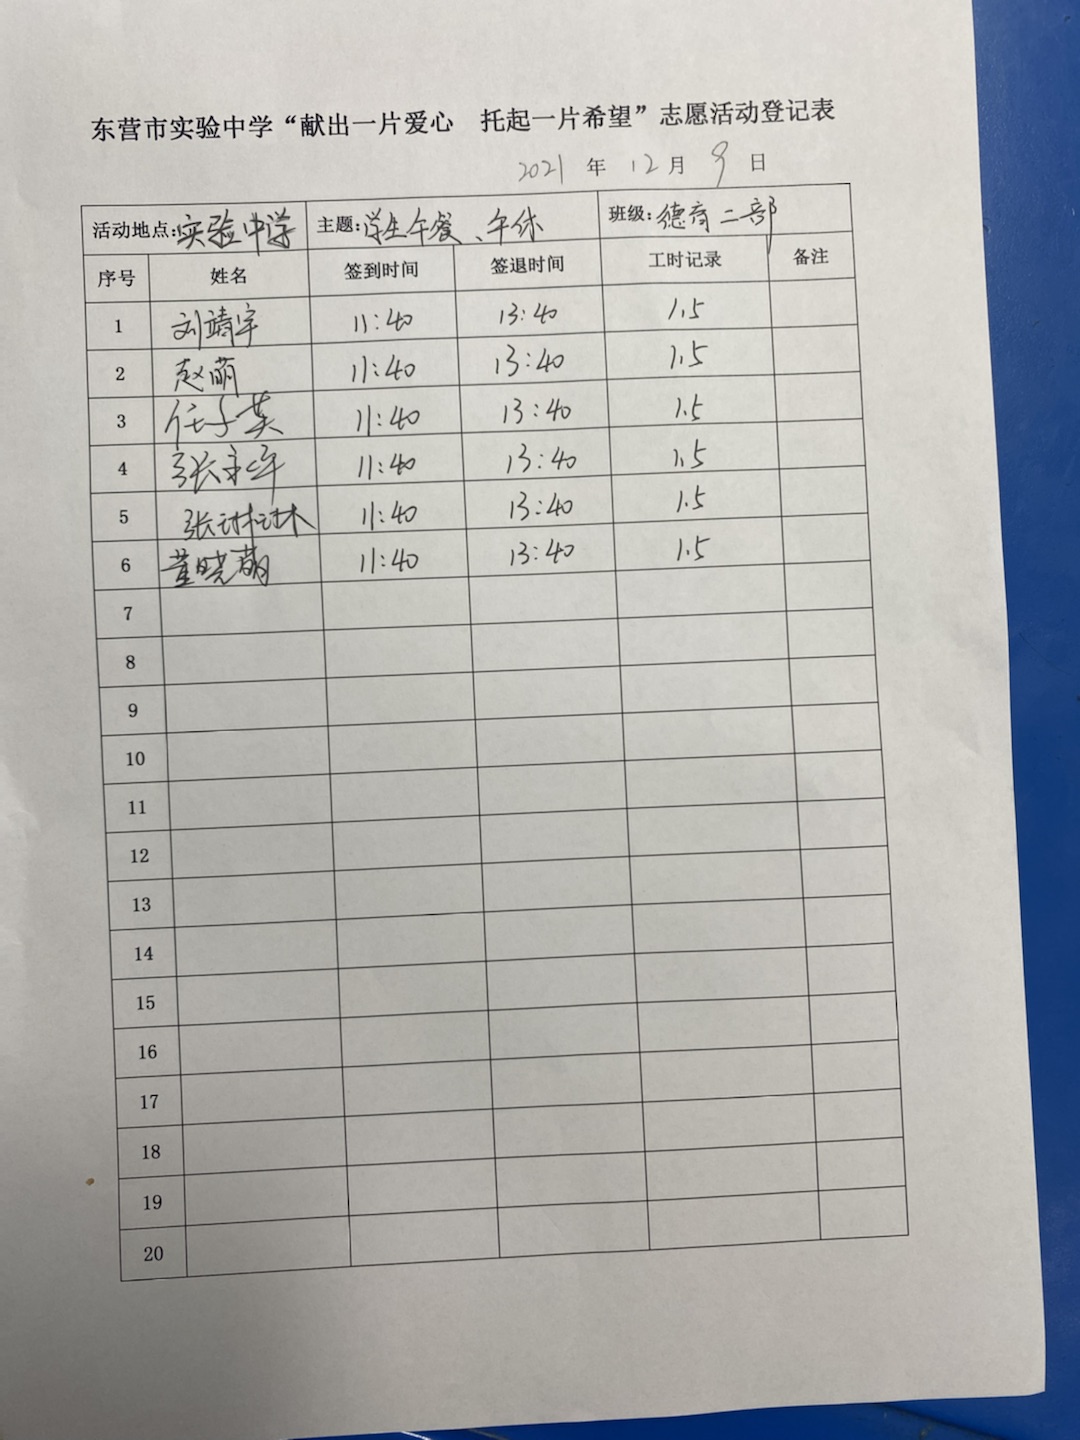 东营市实验中学“献出一片爱心 托起一片希望”志愿活动登记表
2021 年 12 月 9 日
活动地点:实验中学 主题:学生午餐、午休 班级:德育二部
序号 姓名 签到时间 签退时间 工时记录 备注
1 刘靖宇 11:40 13:40 1.5
2 赵萌 11:40 13:40 1.5
3 任子英 11:40 13:40 1.5
4 张 11:40 13:40 1.5
5 张琳琳 11:40 13:40 1.5
6 董晓萌 11:40 13:40 1.5
7
8
9
10
11
12
13
14
15
16
17
18
19
20